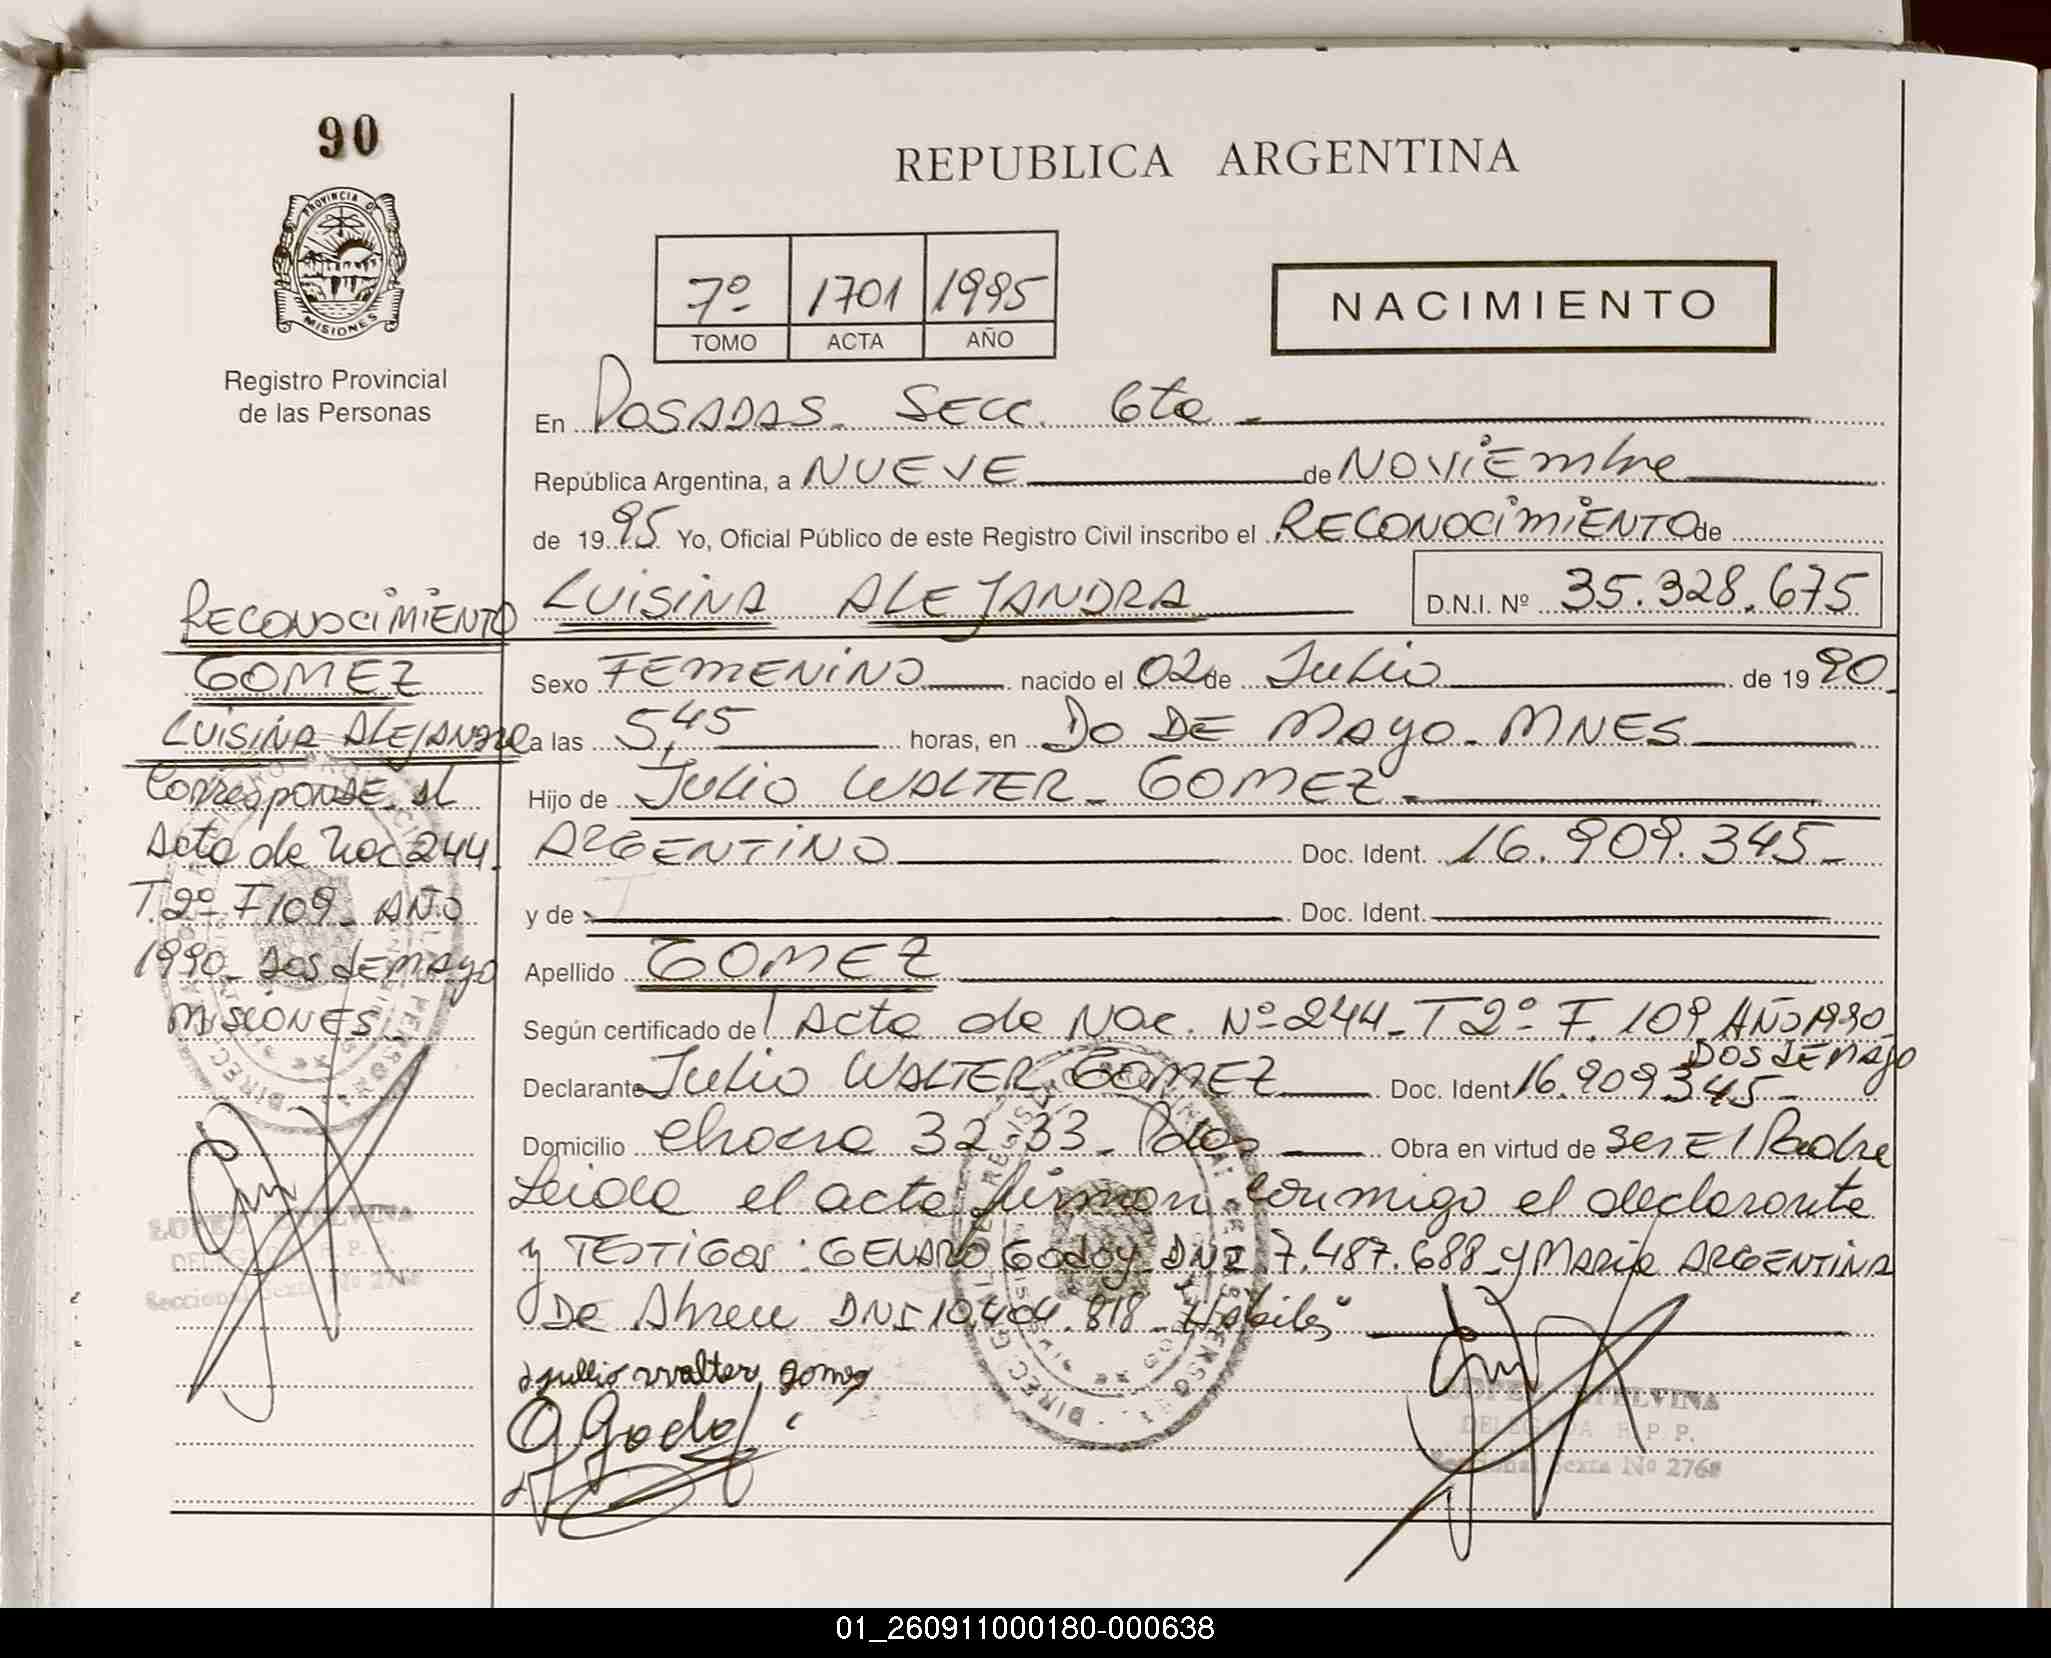 90
PROVINCIA D
MISIONES
Registro Provincial
de las Personas
REPUBLICA ARGENTINA
7º 1701 1995
TOMO ACTA AÑO
NACIMIENTO
En POSADAS. SECC. 6ta
República Argentina, a NUEVE de NOVIEmbre
de 1995 Yo, Oficial Público de este Registro Civil inscribo el RECONOCIMIENTO de
LUISINA ALEJANDRA D.N.I. Nº 35.328.675
Sexo FEMENINO nacido el 02 de Julio de 1990
a las 5,45 horas, en Do DE MAyo - MNES
Hijo de Julio WALTER - GOMEZ -
ARGENTINO Doc. Ident. 16.909.345-
y de Doc. Ident.
Apellido GOMEZ
Según certificado de Acta de Nac. Nº 244 - T 2º - F. 109 AÑO 1990
DOS DE MAyo
Declarante Julio WALTER GOMEZ Doc. Ident 16.909.345-
Domicilio chacra 32-33- Pdas Obra en virtud de ser El Padre
Leida el acta firman conmigo el declarante
y TESTIGOS: GENARO Godoy DNI 7.487.688 y MARIA ARGENTINA
De Abreu DNI 10.404.818 "Habiles"
RECONOCIMIENTO
GOMEZ
LUISINA ALEJANDRA
Corresponde al
Acta de Nac 244.
T. 2º - F 109 - AÑO
1990 - DOS DE MAyo
MISIONES
LOPEZ ETELVINA
DELEGADA R. P. P.
Seccional Sexta Nº 276
jullio walter gomez
G Godoy
LOPEZ ETELVINA
DELEGADA R. P. P.
Seccional Sexta Nº 276
01_260911000180-000638